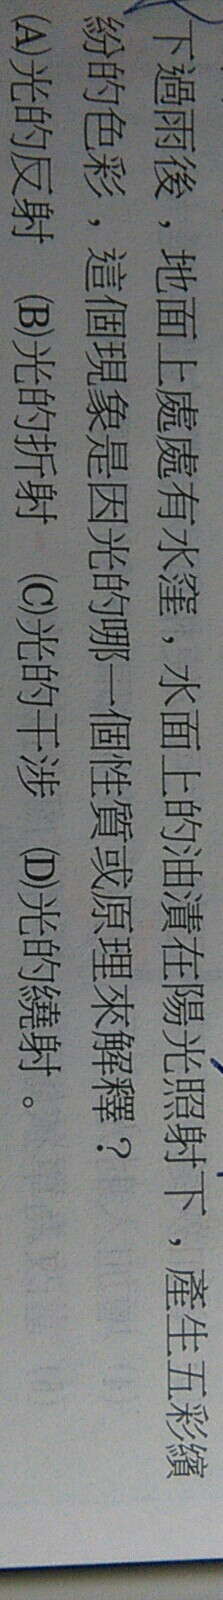 下過雨後，地面上處處有水窪，水面上的油漬在陽光照射下，產生五彩繽
紛的色彩，這個現象是因光的哪一個性質或原理來解釋？
(A)光的反射 (B)光的折射 (C)光的干涉 (D)光的繞射。